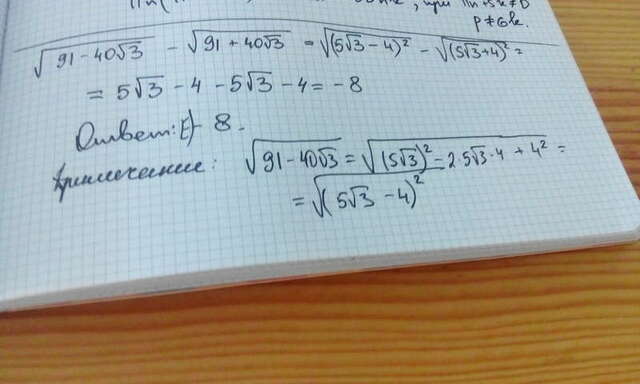 при πn+5x≠0
p≠6k.
√(91-40√3) - √(91+40√3) = √(5√3-4)² - √(5√3+4)² =
= 5√3 - 4 - 5√3 - 4 = -8
Ответ: E) -8.
Примечание: √(91-40√3) = √((5√3)² - 2·5√3·4 + 4²) =
= √(5√3-4)²